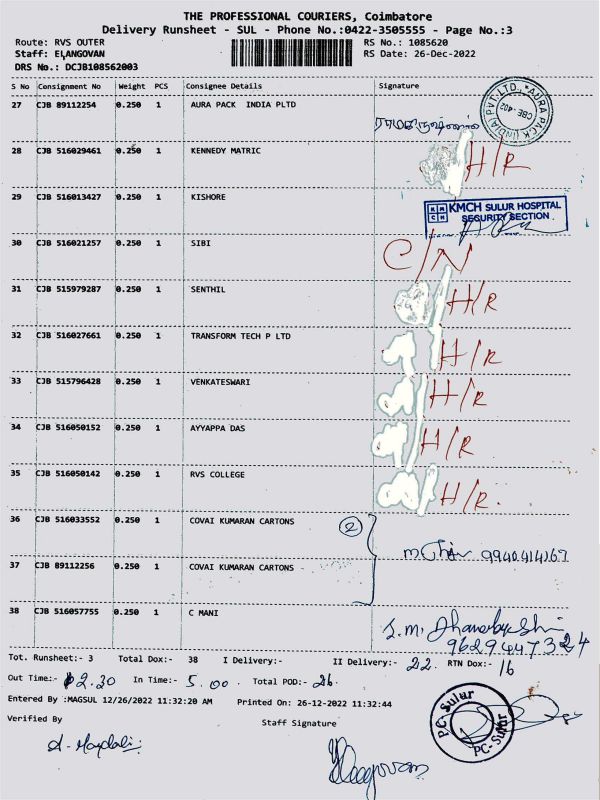 THE PROFESSIONAL COURIERS, Coimbatore
Delivery Runsheet - SUL - Phone No.:0422-3505555 - Page No.:3
Route: RVS OUTER RS No.: 1085620
Staff: ELANGOVAN RS Date: 26-Dec-2022
DRS No.: DCJB108562003
S No Consignment No Weight PCS Consignee Details Signature
27 CJB 89112254 0.250 1 AURA PACK INDIA PLTD
AURA PACK (INDIA) PVT. LTD., CBE-402
28 CJB 516029461 0.250 1 KENNEDY MATRIC H/R
29 CJB 516013427 0.250 1 KISHORE
KMCH SULUR HOSPITAL
SECURITY SECTION
30 CJB 516021257 0.250 1 SIBI C/N
31 CJB 515979287 0.250 1 SENTHIL H/R
32 CJB 516027661 0.250 1 TRANSFORM TECH P LTD H/R
33 CJB 515796428 0.250 1 VENKATESWARI H/R
34 CJB 516050152 0.250 1 AYYAPPA DAS H/R
35 CJB 516050142 0.250 1 RVS COLLEGE H/R.
36 CJB 516033552 0.250 1 COVAI KUMARAN CARTONS 2
9940414167
37 CJB 89112256 0.250 1 COVAI KUMARAN CARTONS
38 CJB 516057755 0.250 1 C MANI
9629447324
Tot. Runsheet:- 3 Total Dox:- 38 I Delivery:- II Delivery:- 22. RTN Dox:- 16
Out Time:- 2.30 In Time:- 5.00. Total POD:- 26.
Entered By :MAGSUL 12/26/2022 11:32:20 AM Printed On: 26-12-2022 11:32:44
Verified By Staff Signature
PC-Sulur
PC-Sulur